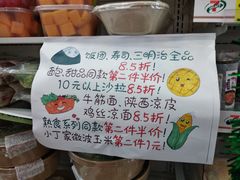 饭团、寿司、三明治全品
8.5折!
面包、甜品同款第二件半价!
10元以上沙拉8.5折!
牛筋面、陕西凉皮
鸡丝凉面8.5折!
熟食系列同款第二件半价!
小丁家微波玉米第二件1元!